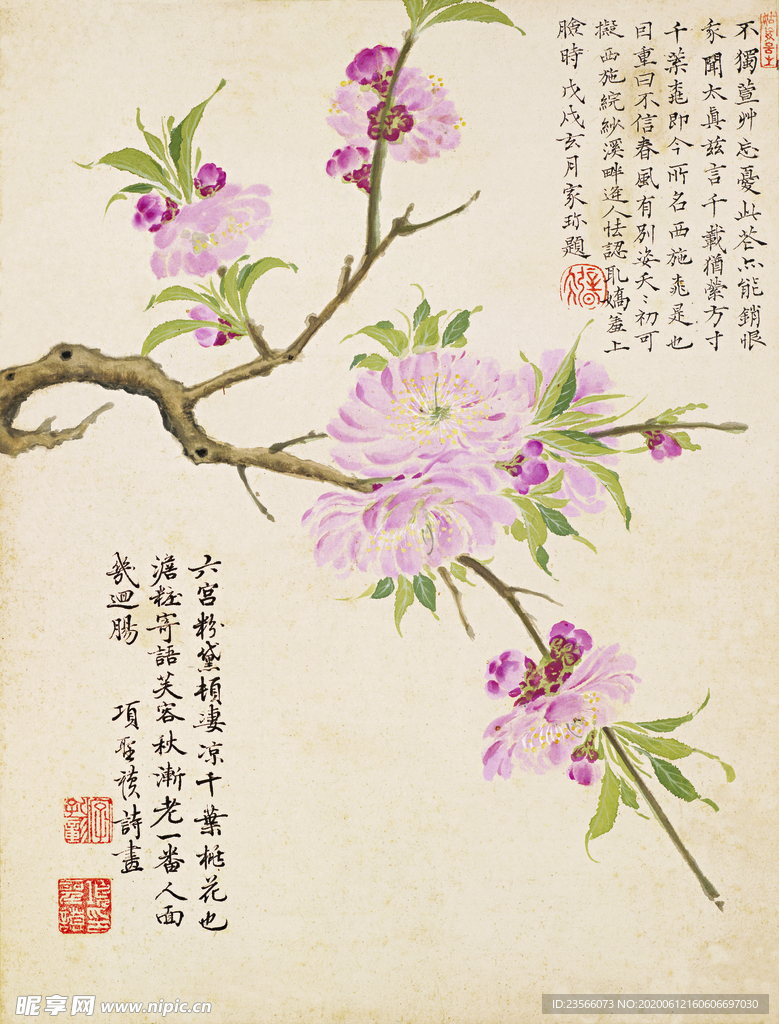 不獨萱艸忘憂此花亦能銷恨
家聞太真茲言千載猶縈方寸
千葉桃即今所名西施桃是也
因重曰不信春風有別姿夭〻初可
擬西施浣紗溪畔逢人怯認取嬌羞上
臉時 戊戌玄月家珍題
六宮粉黛頓淒凉千葉桃花也
澹粧寄語芙容秋漸老一番人面
幾迴腸 項聖謨詩畫
昵享网 www.nipic.cn
ID:23566073 NO:20200612160606697030